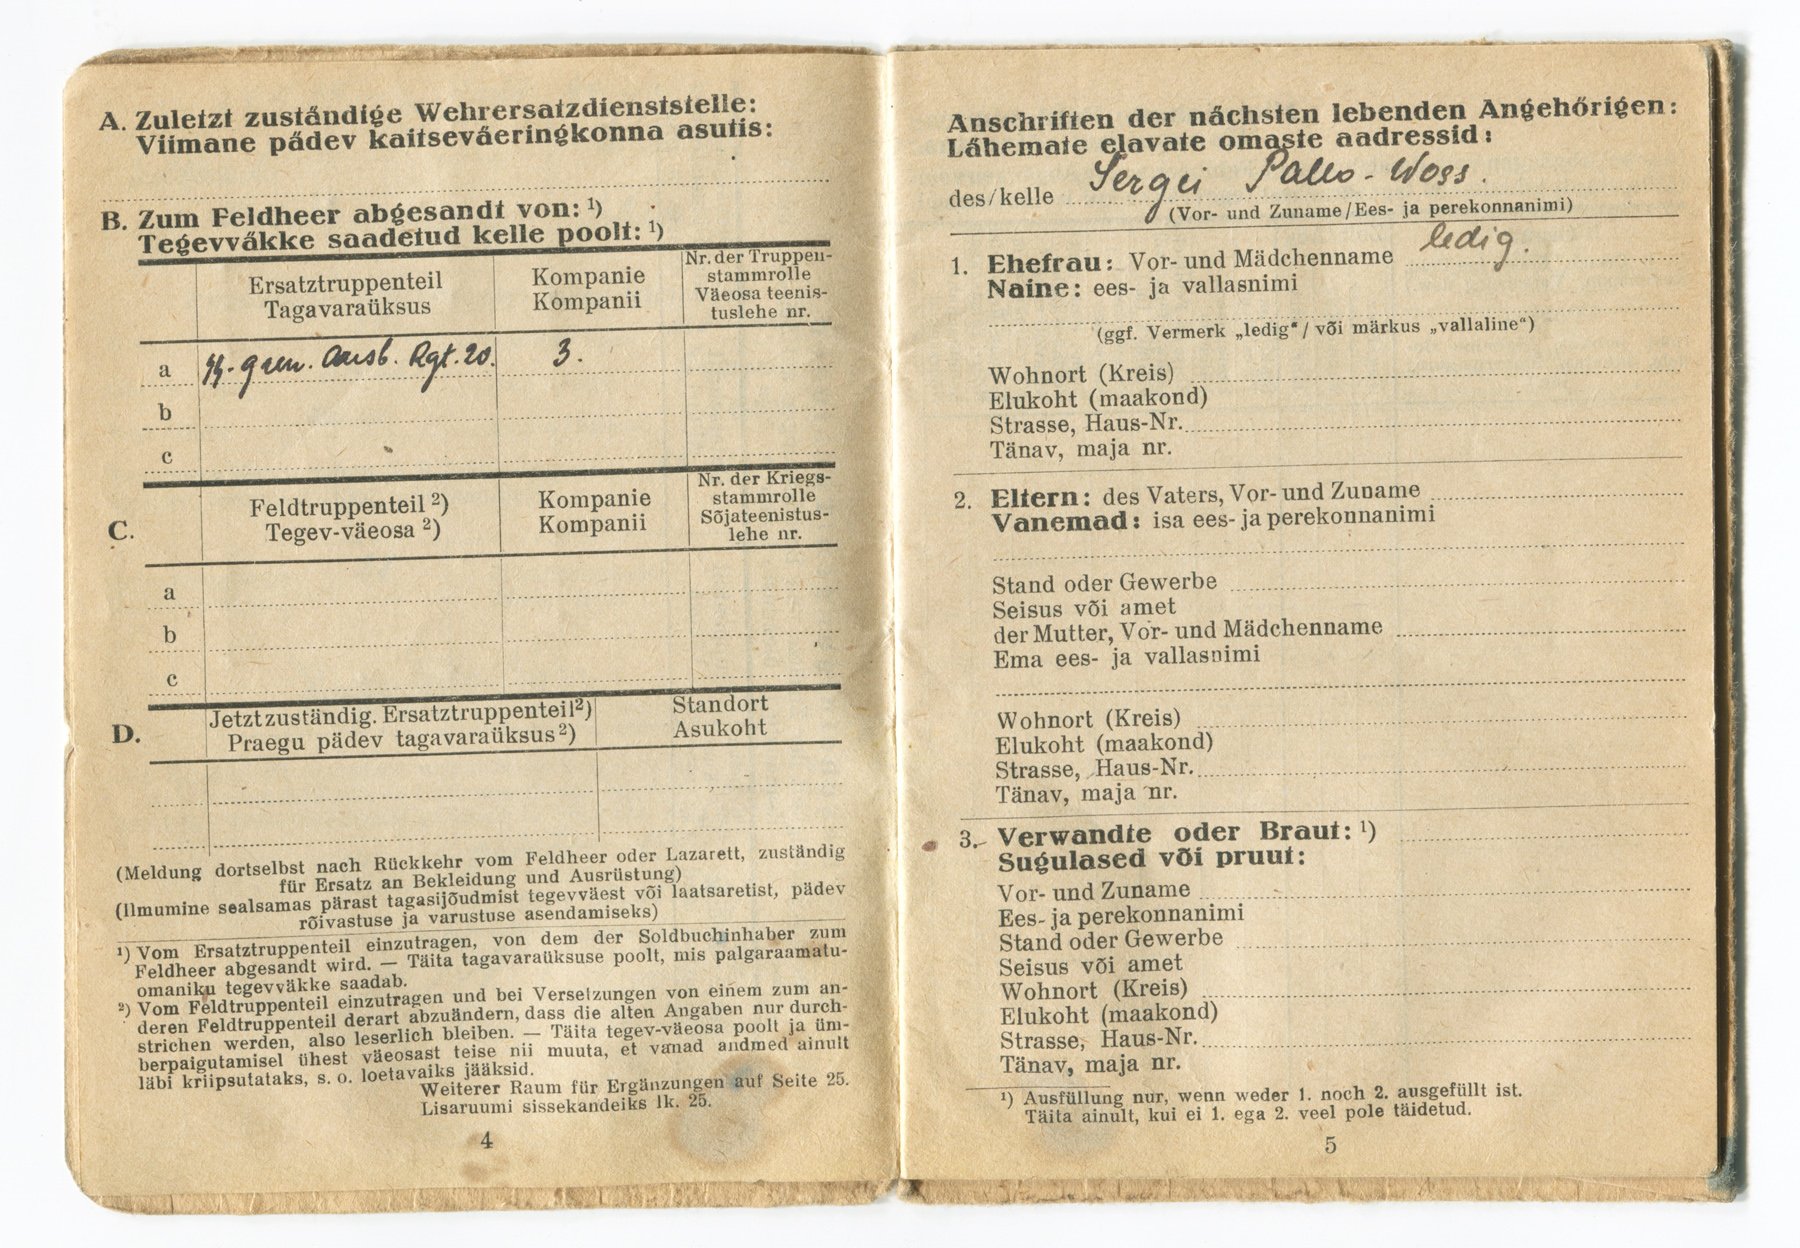 A. Zuletzt zuständige Wehrersatzdienststelle:
Viimane pädev kaitseväeringkonna asutis:
B. Zum Feldheer abgesandt von: ¹)
Tegevväkke saadetud kelle poolt: ¹)
Ersatztruppenteil
Tagavaraüksus
Kompanie
Kompanii
Nr. der Truppen-
stammrolle
Väeosa teenis-
tuslehe nr.
a ᛋᛋ-Gren. Ausb. Rgt. 20. 3.
b
c
C.
Feldtruppenteil ²)
Tegev-väeosa ²)
Kompanie
Kompanii
Nr. der Kriegs-
stammrolle
Sõjateenistus-
lehe nr.
a
b
c
D.
Jetzt zuständig. Ersatztruppenteil²)
Praegu pädev tagavaraüksus ²)
Standort
Asukoht
(Meldung dortselbst nach Rückkehr vom Feldheer oder Lazarett, zuständig
für Ersatz an Bekleidung und Ausrüstung)
(Ilmumine sealsamas pärast tagasijõudmist tegevväest või laatsaretist, pädev
rõivastuse ja varustuse asendamiseks)
¹) Vom Ersatztruppenteil einzutragen, von dem der Soldbuchinhaber zum
Feldheer abgesandt wird. — Täita tagavaraüksuse poolt, mis palgaraamatu-
omaniku tegevväkke saadab.
²) Vom Feldtruppenteil einzutragen und bei Versetzungen von einem zum an-
deren Feldtruppenteil derart abzuändern, dass die alten Angaben nur durch-
strichen werden, also leserlich bleiben. — Täita tegev-väeosa poolt ja üm-
berpaigutamisel ühest väeosast teise nii muuta, et vanad andmed ainult
läbi kriipsutataks, s. o. loetavaiks jääksid.
Weiterer Raum für Ergänzungen auf Seite 25.
Lisaruumi sissekandeiks lk. 25.
4
Anschriften der nächsten lebenden Angehörigen:
Lähemate elavate omaste aadressid:
des/kelle Sergei Pallo-Woss.
(Vor- und Zuname/Ees- ja perekonnanimi)
1. Ehefrau: Vor- und Mädchenname ledig.
Naine: ees- ja vallasnimi
(ggf. Vermerk „ledig“ / või märkus „vallaline“)
Wohnort (Kreis)
Elukoht (maakond)
Strasse, Haus-Nr.
Tänav, maja nr.
2. Eltern: des Vaters, Vor- und Zuname
Vanemad: isa ees- ja perekonnanimi
Stand oder Gewerbe
Seisus või amet
der Mutter, Vor- und Mädchenname
Ema ees- ja vallasnimi
Wohnort (Kreis)
Elukoht (maakond)
Strasse, Haus-Nr.
Tänav, maja nr.
3. Verwandte oder Braut: ¹)
Sugulased või pruut:
Vor- und Zuname
Ees- ja perekonnanimi
Stand oder Gewerbe
Seisus või amet
Wohnort (Kreis)
Elukoht (maakond)
Strasse, Haus-Nr.
Tänav, maja nr.
¹) Ausfüllung nur, wenn weder 1. noch 2. ausgefüllt ist.
Täita ainult, kui ei 1. ega 2. veel pole täidetud.
5